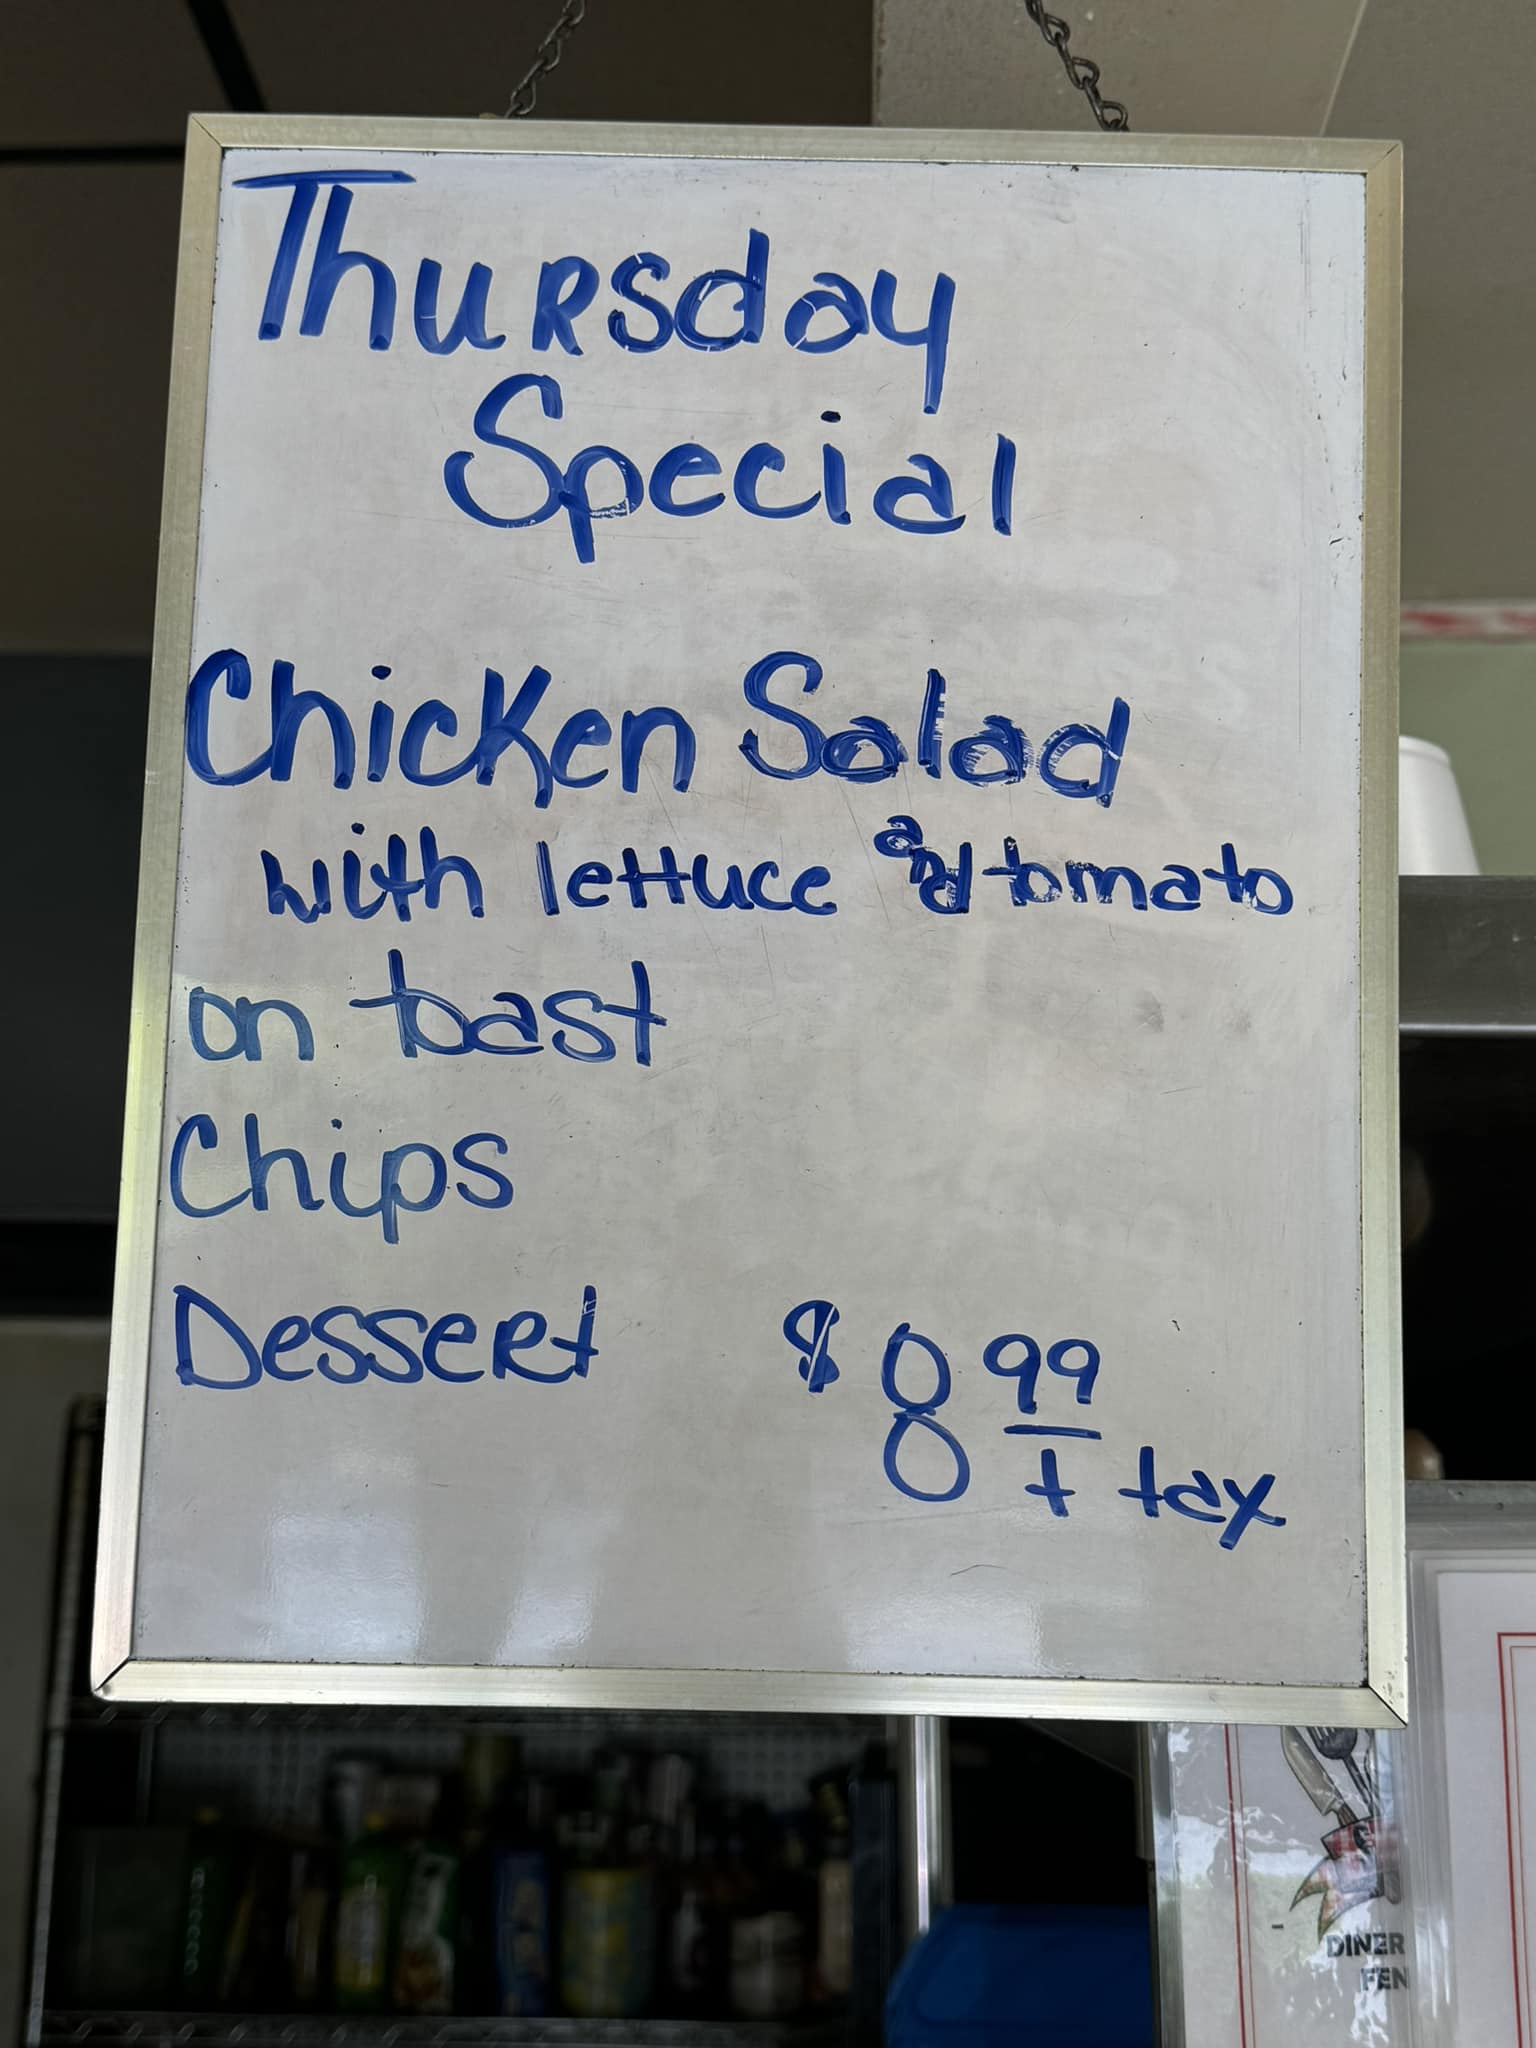 Thursday
Special
Chicken Salad
with lettuce and tomato
on toast
Chips
Dessert $8 99
+ tax
DINER
FEN